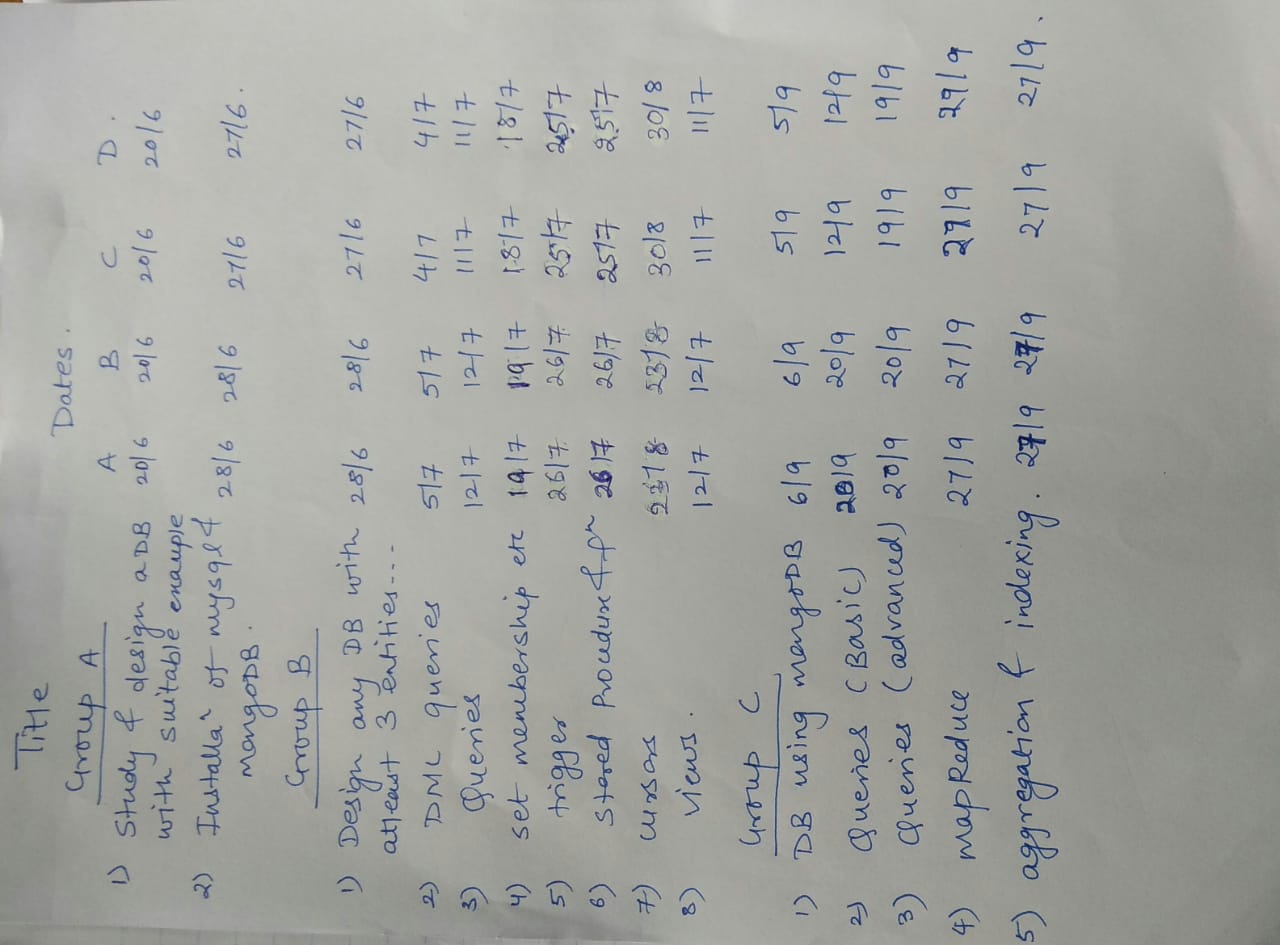 Title
Dates.
Group A
A B C D.
1) Study & design a DB 20/6 20/6 20/6 20/6
with suitable example
2) Installaⁿ of mysql & 28/6 28/6 27/6 27/6.
mongoDB.
Group B
1) Design any DB with 28/6 28/6 27/6 27/6
atleast 3 entities...
2) DML queries 5/7 5/7 4/7 4/7
3) Queries 12/7 12/7 11/7 11/7
4) set membership etc 19/7 19/7 18/7 18/7
5) trigger 26/7 26/7 25/7 25/7
6) Stored Procedure & fⁿ 26/7 26/7 25/7 25/7
7) cursors 23/8 23/8 30/8 30/8
8) views. 12/7 12/7 11/7 11/7
Group C
1) DB using mongoDB 6/9 6/9 5/9 5/9
2) Queries (Basic) 20/9 20/9 12/9 12/9
3) Queries (advanced) 20/9 20/9 19/9 19/9
4) mapReduce 27/9 27/9
5) aggregation & indexing. 27/9 27/9 27/9 27/9.